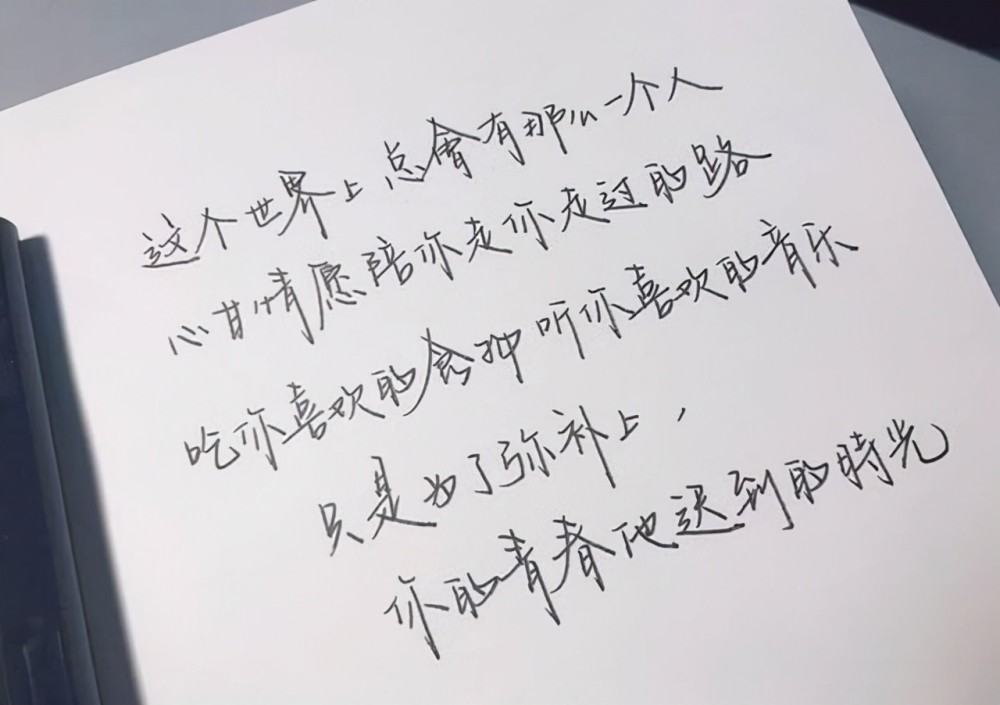 这个世界上总會有那么一个人
心甘情愿陪你走你走过的路
吃你喜欢的食物听你喜欢的音乐
只是为了弥补上,
你的青春他迟到的時光